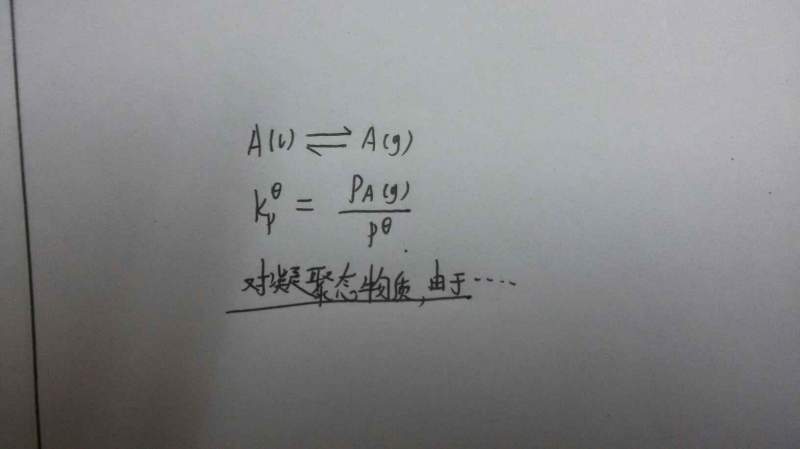 A(l) ⇌ A(g)
K_p^θ = p_A(g) / p^θ
对凝聚态物质,由于····